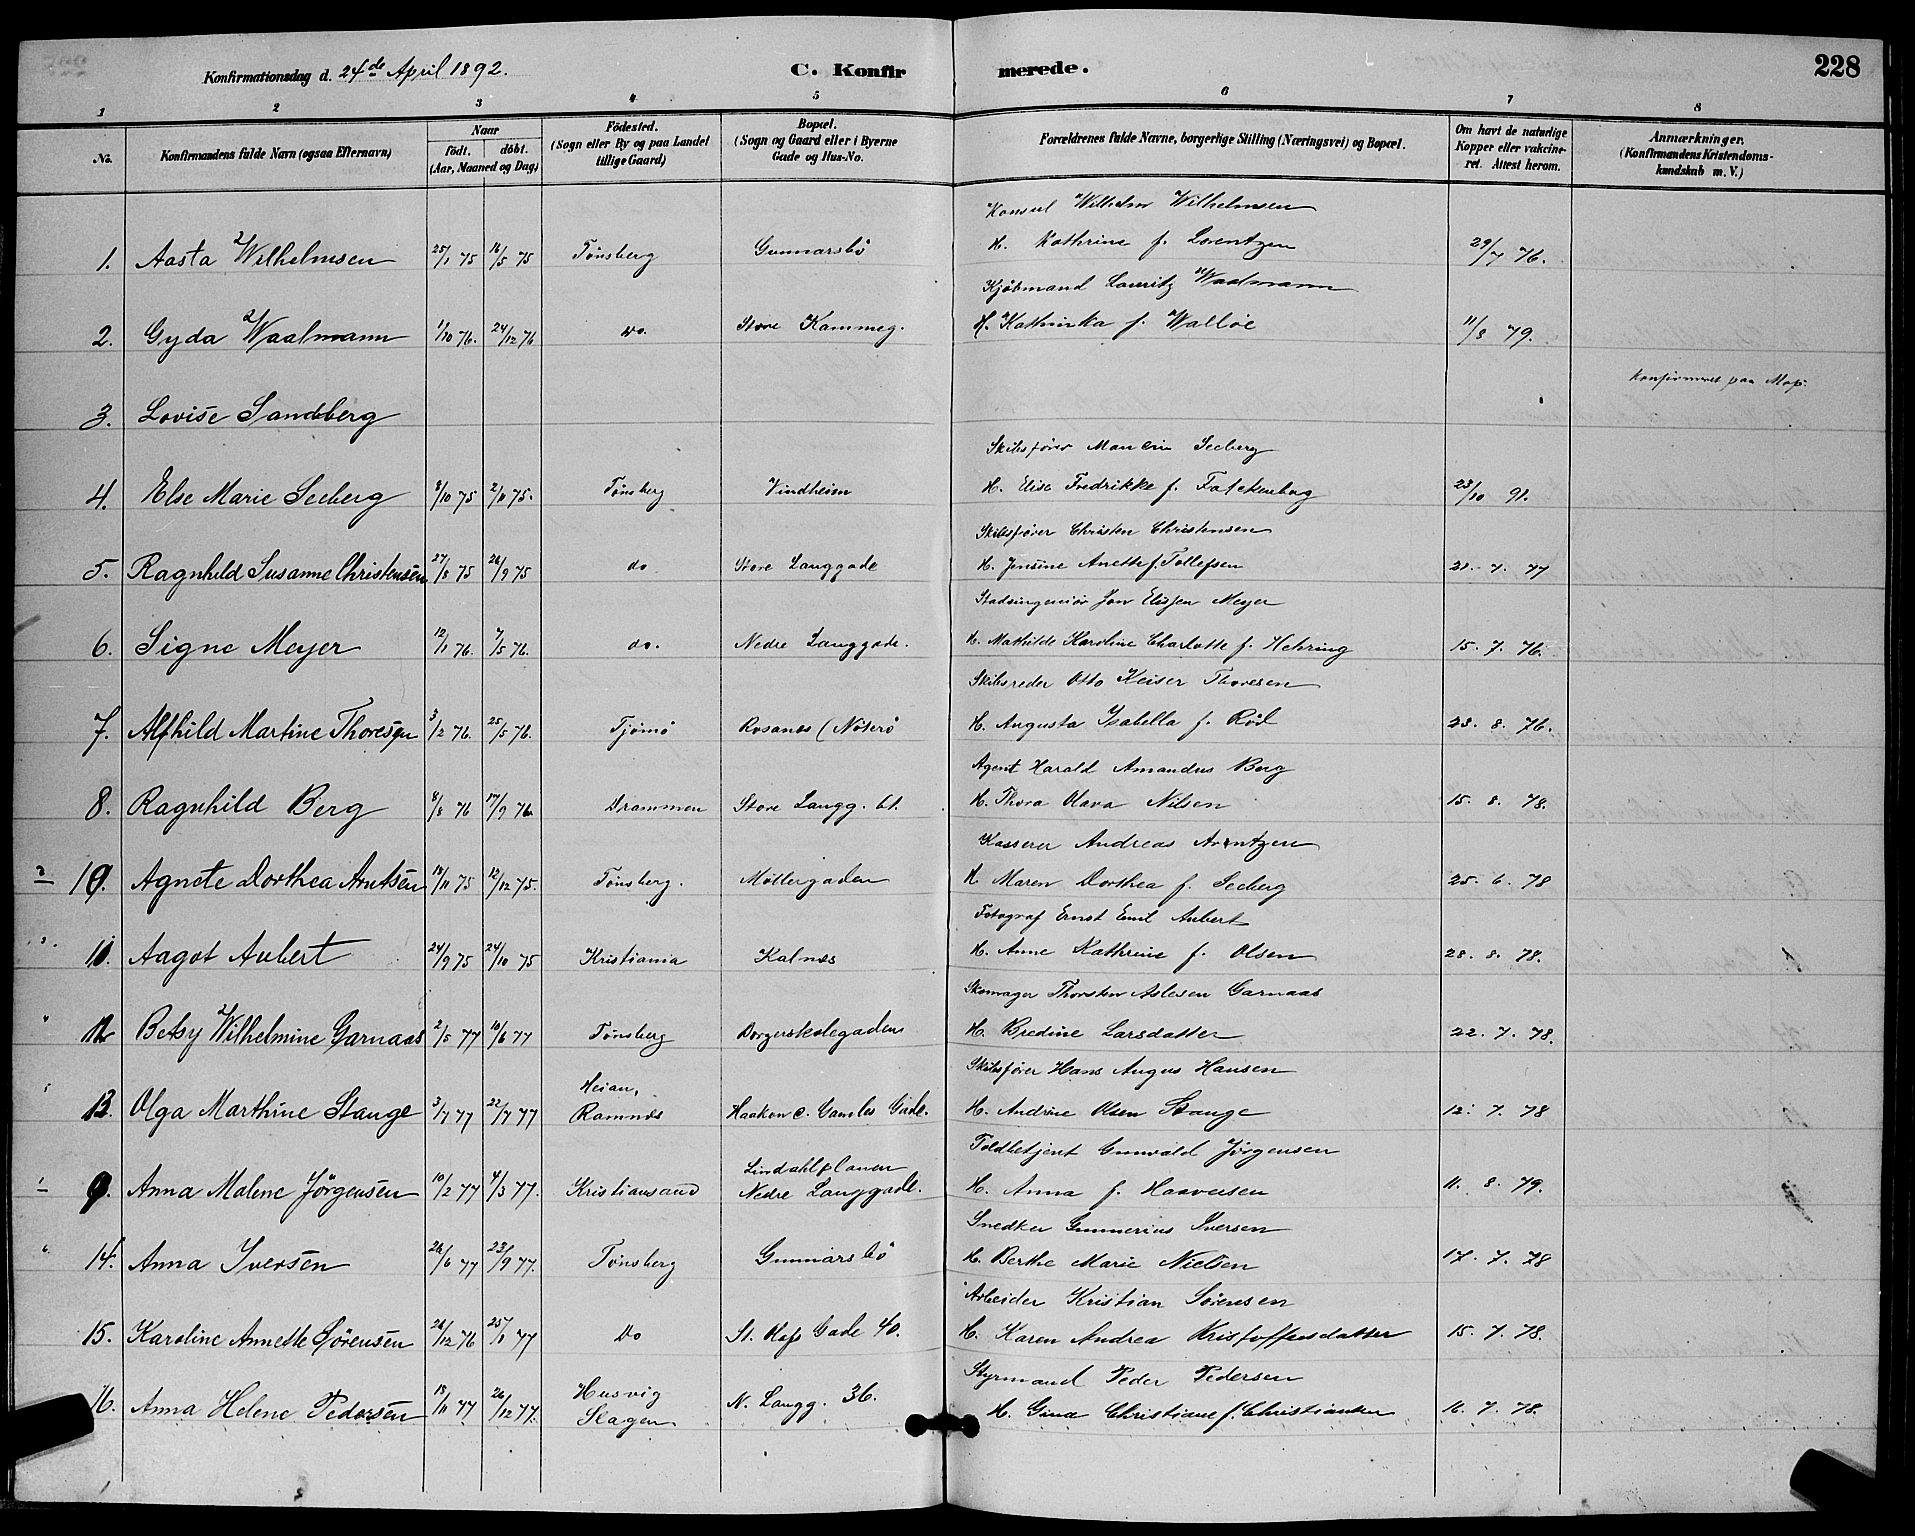 228
Konfirmationsdag d. 24de April 1892.
C. Konfirmerede.
1 2 3 4 5 6 7 8
No. | Konfirmandens fulde Navn (ogsaa Efternavn) | Naar födt. döbt. (Aar, Maaned og Dag) | Födested. (Sogn eller By og paa Landet tillige Gaard) | Bopæl. (Sogn og Gaard eller i Byerne Gade og Hus-No. | Forældrenes fulde Navne, borgerlige Stilling (Næringsvei) og Bopæl. | Om havt de naturlige Kopper eller vakcineret. Attest herom. | Anmærkninger. (Konfirmandens Kristendomskundskab m. V.)
Konsul Wilhelm Wilhelmsen
1. Aasta Wilhelmsen 25/1 75 16/5 75 Tönsberg Gunnarsbö H. Kathrine f. Lorentzen 29/7 76.
Kjöbmand Lauritz Waalmann
2. Gyda Waalmann 1/10 76. 24/12 76 Do. Store Kammeg. H. Kathinka f. Wallöe 11/8 79.
Konfirmeret paa
3. Lovise Sandberg
Skibsförer Seeberg
4. Else Marie Seeberg 8/10 75 2/11 75. Tönsberg Vindheim H. Elise Fredrikke f. Falckenberg 23/10 91.
Skibsförer Christen Christensen
5. Ragnhild Susanne Christensen 27/8 75 26/9 75 do Store Langgade H. Jensine Anette f. Tollefsen 28. 7. 77
Stadsingeniör Jon Meyer
6. Signe Meyer 12/1 76. 7/5 76. do. Nedre Langgade. H. Mathilde Karoline Charlotte f. Hehring 15. 7. 76.
Skibsreder Otto Keiser Thoresen
7. Alfhild Martine Thoresen 3/2 76. 25/5 76. Tjömö Rosanes (Nöterö H. Augusta Isabella f. Röd 23. 8. 76.
Agent Harald Amandus Berg
8. Ragnhild Berg 8/8 76 17/9 76. Drammen Store Langg. 61. H. Thora Olava Nilsen 15. 8. 78.
Kasserer Andreas Arntzen
10. Agnete Dorthea Arntsen 18/11 75 12/12 75. Tönsberg. Möllergaden H. Maren Dorthea f. Seeberg 25. 6. 78
Fotograf Ernst Emil Aubert
11. Aagot Aubert 24/9 75 24/10 75 Kristiania Kalnes H. Anne Kathrine f. Olsen 28. 8. 78.
Skomager Thorsten Aslesen Garnaas
12 Betsy Wilhelmine Garnaas 2/5 77 10/6 77 Tönsberg Borgerskolegaden H. Bredine Larsdatter 22. 7. 78.
Skibsförer Hans August Hansen
13. Olga Marthine Stange 3/7 77 22/7 77 Heian, Ramnes Haakon d. Gamles Gade. H. Andrine Olsen Stange 12. 7. 78
Toldbetjent Gunvald Jörgensen
9. Anna Malene Jörgensen 10/2 77 4/3 77. Kristiansand Lindahlplanen Nedre Langgade. H. Anna f. Haaversen 11. 8. 79.
Snedker Gunnerius Iversen
14. Anna Iversen 26/6 77 23/9 77. Tönsberg Gunnarsbö H. Berthe Marie Nielsen 17. 7. 78
Arbeider Kristian Sörensen
15. Karoline Annette Sörensen 26/12 76 25/1 77 Do St. Olafs Gade 40. H. Karen Andrea Kristoffersdatter 15. 7. 78.
Styrmand Peder Pedersen
16. Anna Helene Pedersen 18/11 77 26/12 77. Husvig Slagen N. Langg. 36. H. Gina Christiane f. Christiansen 16. 7. 78.